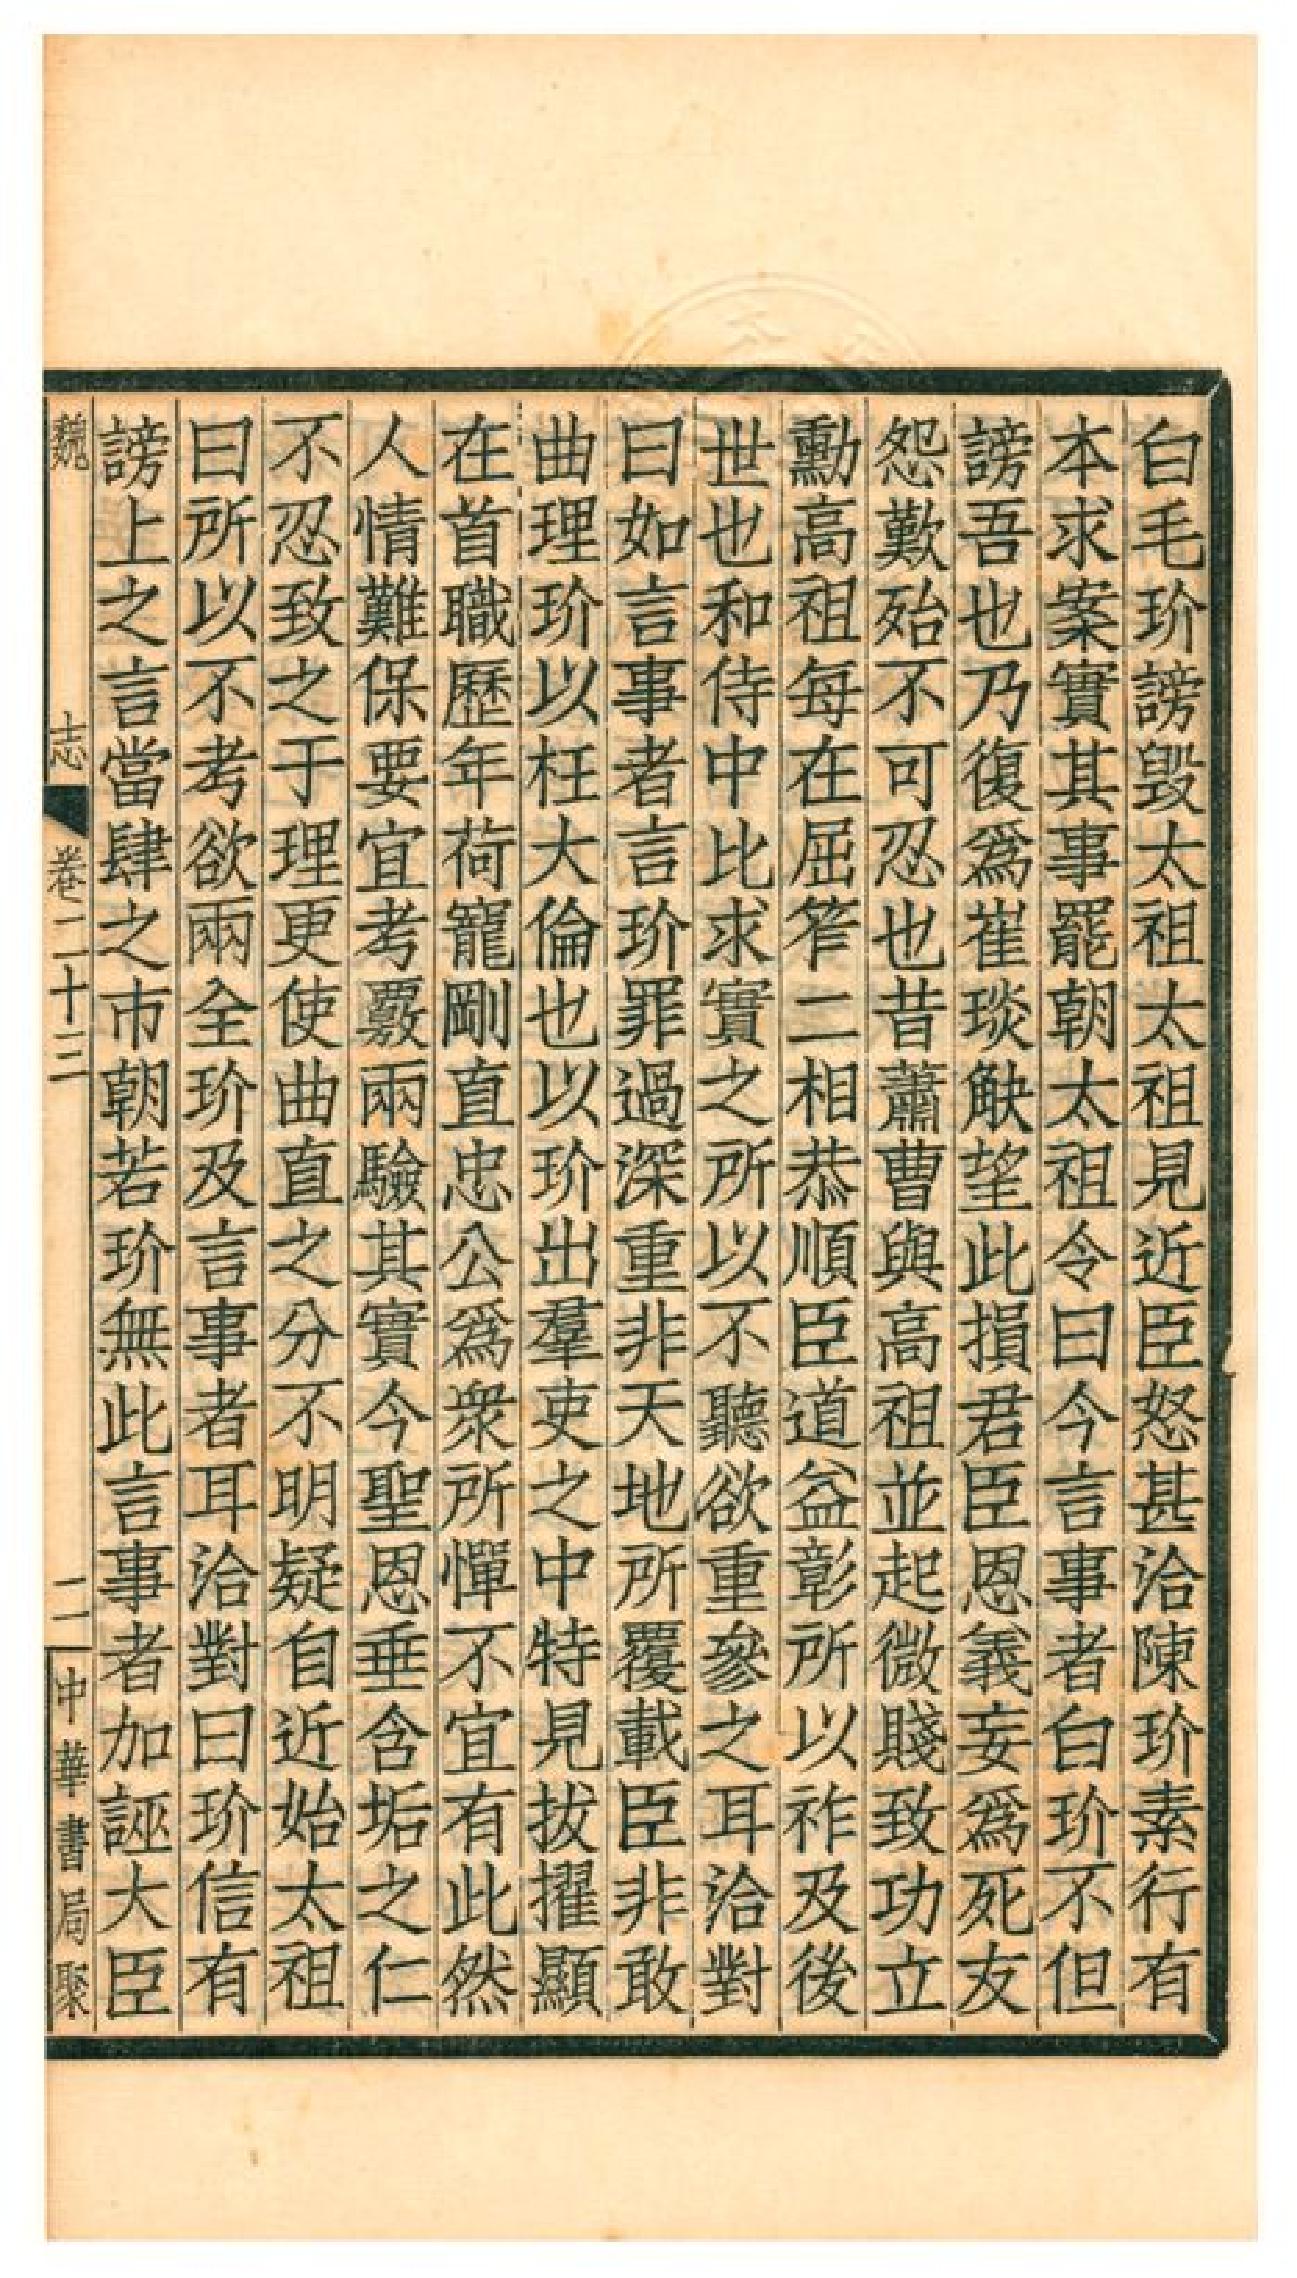 白毛玠謗毀太祖太祖見近臣怒甚洽陳玠素行有
本求案實其事罷朝太祖令曰今言事者白玠不但
謗吾也乃復爲崔琰觖望此損君臣恩義妄爲死友
怨歎殆不可忍也昔蕭曹與高祖並起微賤致功立
勳高祖每在屈笮二相恭順臣道益彰所以祚及後
世也和侍中比求實之所以不聽欲重參之耳洽對
曰如言事者言玠罪過深重非天地所覆載臣非敢
曲理玠以枉大倫也以玠出羣吏之中特見拔擢顯
在首職歷年荷寵剛直忠公爲衆所憚不宜有此然
人情難保要宜考覈兩驗其實今聖恩垂含垢之仁
不忍致之于理更使曲直之分不明疑自近始太祖
曰所以不考欲兩全玠及言事者耳洽對曰玠信有
謗上之言當肆之市朝若玠無此言事者加誣大臣
魏 志 卷二十三 二 中華書局聚